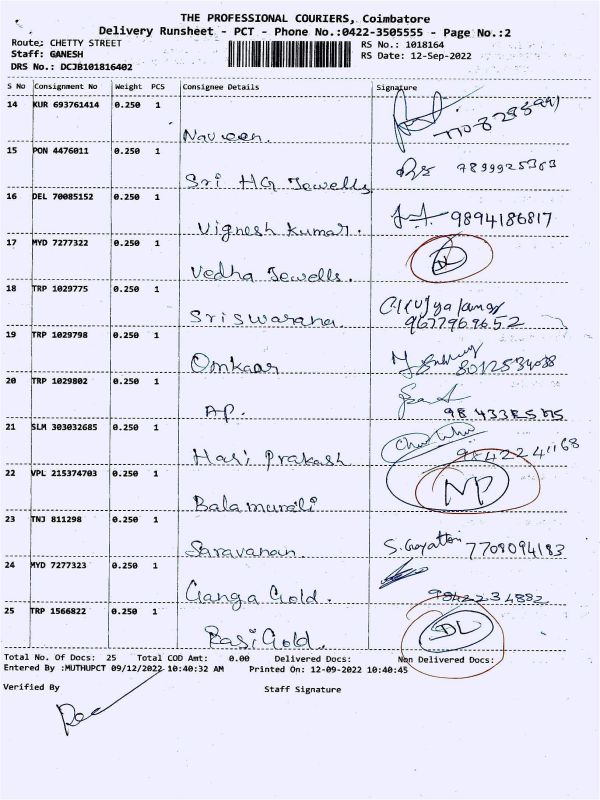 THE PROFESSIONAL COURIERS, Coimbatore
Delivery Runsheet - PCT - Phone No.:0422-3505555 - Page No.:2
Route: CHETTY STREET
RS No.: 1018164
Staff: GANESH
RS Date: 12-Sep-2022
DRS No.: DCJB101816402
S No Consignment No Weight PCS Consignee Details Signature
14 KUR 693761414 0.250 1
Naveen.
15 PON 4476011 0.250 1
Sri HG Jewells 7899925363
16 DEL 70085152 0.250 1
Vignesh kumar. 9894186817
17 MYD 7277322 0.250 1
Vedha Jewells. DL
18 TRP 1029775 0.250 1
Sriswarana. 9677969652
19 TRP 1029798 0.250 1
Omkaar 8012534088
20 TRP 1029802 0.250 1
AP.
21 SLM 303032685 0.250 1
Hari prakash 9842241168
22 VPL 215374703 0.250 1
Balamurali NP
23 TNJ 811298 0.250 1
Saravanan. S. Gayatri 7708094183
24 MYD 7277323 0.250 1
Ganga Gold. 9842234882
25 TRP 1566822 0.250 1
Rasi Gold. DL
Total No. Of Docs: 25 Total COD Amt: 0.00 Delivered Docs: Non Delivered Docs:
Entered By :MUTHUPCT 09/12/2022 10:40:32 AM Printed On: 12-09-2022 10:40:45
Verified By Staff Signature